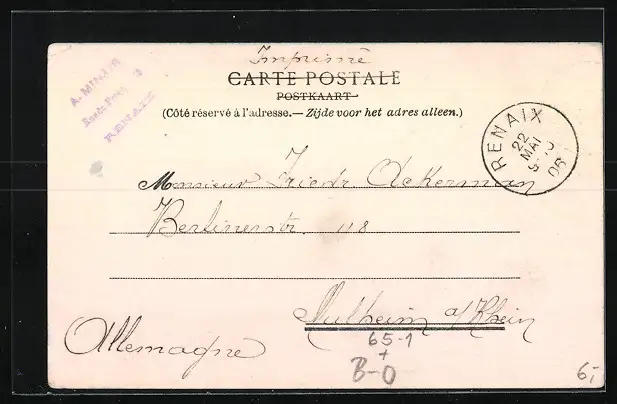 Imprimé
CARTE POSTALE
POSTKAART
(Côté réservé à l'adresse.— Zijde voor het adres alleen.)
A. MINJER
RENAIX
RENAIX
22
MAI
06
Monsieur Friedr Ackerman
Berlinerstr. 118
Mulheim a/Rhein
Allemagne
65-1
+
B-O
6,-